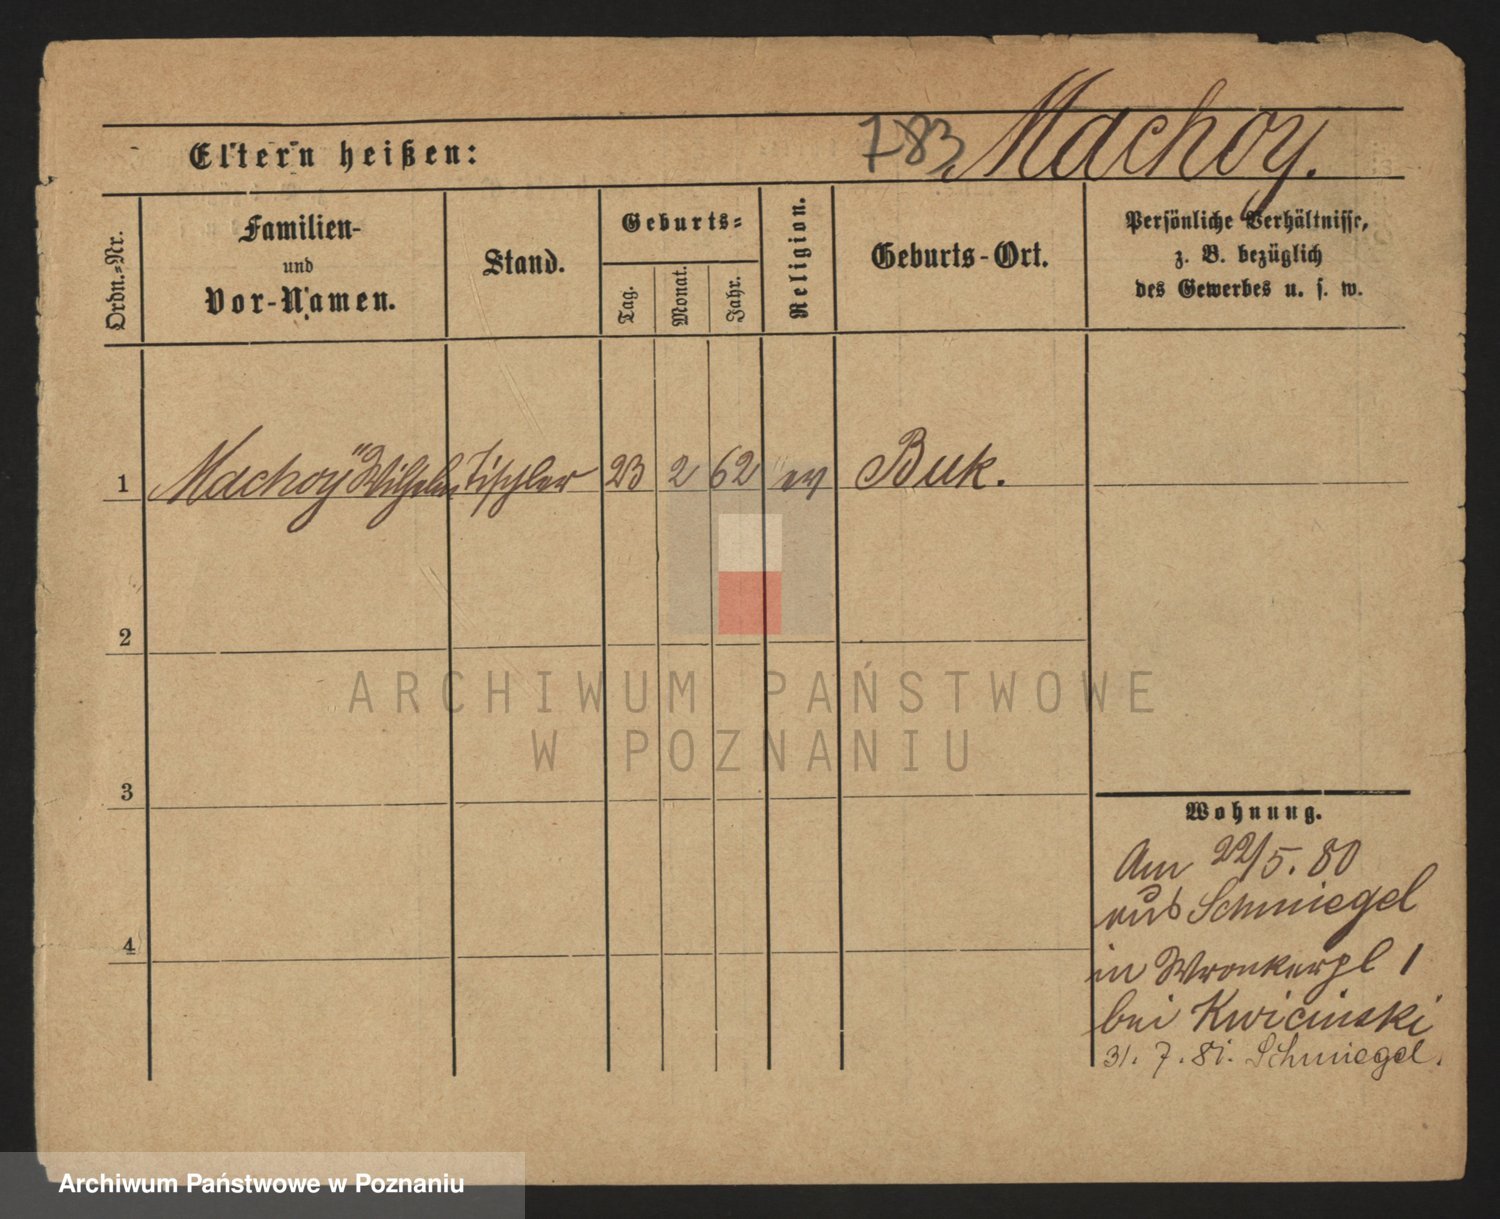 783 Machoy.
Eltern heißen:
Ordn.-Nr.
Familien-
und
Vor-Namen.
Stand.
Geburts-
Tag.
Monat.
Jahr.
Religion.
Geburts-Ort.
Persönliche Verhältnisse,
z. B. bezüglich
des Gewerbes u. s. w.
1 Machoy Wilhelm Tischler 23 2 62 ev Buk.
2
3
4
Wohnung.
Am 22/5. 80
aus Schmiegel
in Wronkerpl 1
bei Kwicinski
31. 7. 81. Schmiegel.
ARCHIWUM PAŃSTWOWE
W POZNANIU
Archiwum Państwowe w Poznaniu